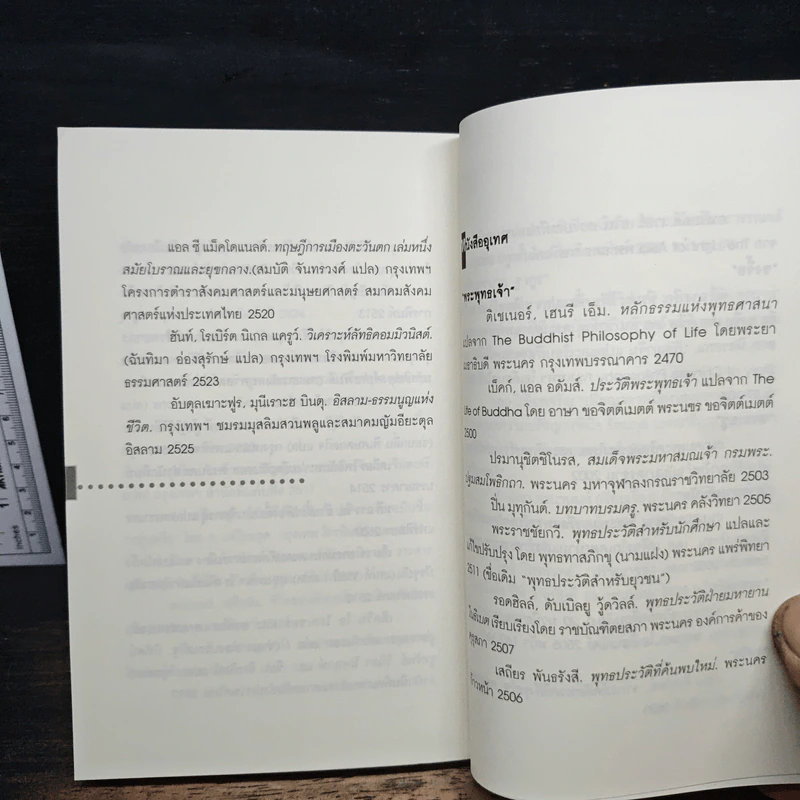 แอล ซี แม็คโดแนลด์. ทฤษฎีการเมืองตะวันตก เล่มหนึ่ง
สมัยโบราณและยุขกลาง.(สมบัติ จันทรวงศ์ แปล) กรุงเทพฯ
โครงการตำราสังคมศาสตร์และมนุษยศาสตร์ สมาคมสังคม
ศาสตร์แห่งประเทศไทย 2520
ฮันท์, โรเบิร์ต นิเกล แครูว์. วิเคราะห์ลัทธิคอมมิวนิสต์.
(ฉันทิมา อ่องสุรักษ์ แปล) กรุงเทพฯ โรงพิมพ์มหาวิทยาลัย
ธรรมศาสตร์ 2523
อับดุลเฆาะฟูร, มุนีเราะฮ บินตุ. อิสลาม-ธรรมนูญแห่ง
ชีวิต. กรุงเทพฯ ชมรมมุสลิมสวนพลูและสมาคมญัมอียะตุล
อิสลาม 2525
หนังสืออุเทศ
"พระพุทธเจ้า"
ดิเชเนอร์, เฮนรี เอ็ม. หลักธรรมแห่งพุทธศาสนา
แปลจาก The Buddhist Philosophy of Life โดยพระยา
มราธิบดี พระนคร กรุงเทพบรรณาคาร 2470
เบ็คก์, แอล อดัมส์. ประวัติพระพุทธเจ้า แปลจาก The
Life of Buddha โดย อาษา ขอจิตต์เมตต์ พระนฃร ขอจิตต์เมตต์
2500
ปรมานุชิตชิโนรส, สมเด็จพระมหาสมณเจ้า กรมพระ.
ปฐมสมโพธิกถา. พระนคร มหาจุฬาลงกรณราชวิทยาลัย 2503
ปิ่น มุทุกันต์. บทบาทบรมครู. พระนคร คลังวิทยา 2505
พระราชชัยกวี. พุทธประวัติสำหรับนักศึกษา แปลและ
แก้ไขปรับปรุง โดย พุทธทาสภิกขุ (นามแฝง) พระนคร แพร่พิทยา
2511 (ชื่อเดิม "พุทธประวัติสำหรับยุวชน")
รอดฮิลล์, ดับเบิลยู วู้ดวิลล์. พุทธประวัติฝ่ายมหายาน
ในธิเบต เรียบเรียงโดย ราชบัณฑิตยสภา พระนคร องค์การค้าของ
คุรุสภา 2507
เสถียร พันธรังสี. พุทธประวัติที่ค้นพบใหม่. พระนคร
ก้าวหน้า 2506
inches